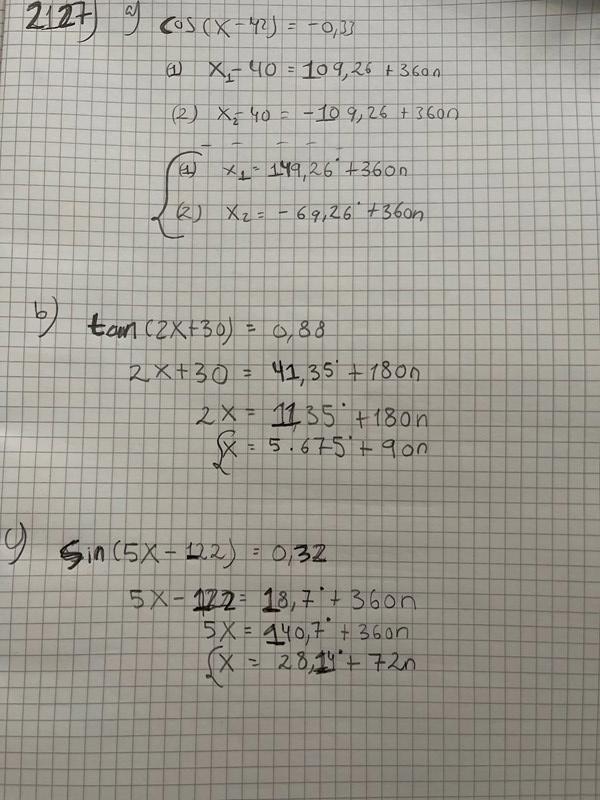 2127) a) cos(x-42) = -0,33
(1) x₁-40 = 109,26 + 360n
(2) x₂-40 = -109,26 + 360n
(1) x₁ = 149,26° + 360n
(2) x₂ = -69,26° + 360n
b) tan(2x+30) = 0,88
2x+30 = 41,35° + 180n
2x = 11,35° + 180n
x = 5.675° + 90n
c) sin(5x-122) = 0,32
5x-122 = 18,7° + 360n
5x = 140,7° + 360n
x = 28,14° + 72n